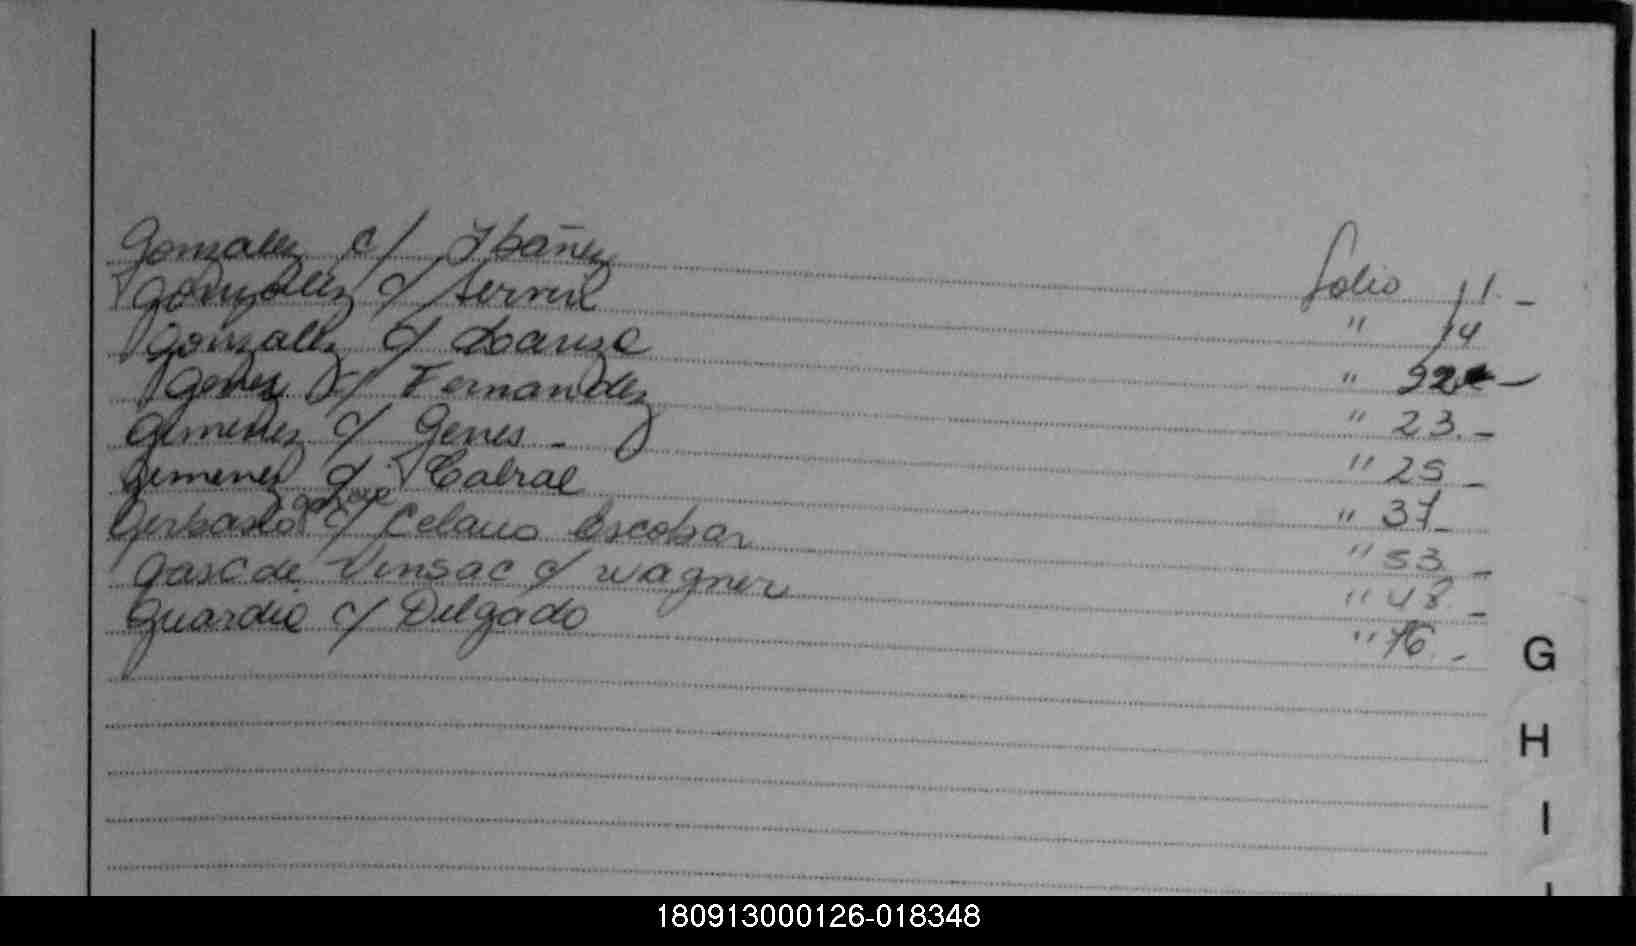 Gonzalez c/ Ibáñez folio 11.-
Gonzalez c/ Servil " 14
Gonzalez c/ Loanza " 22 -
Genes c/ Fernandez " 23.-
Gimenez c/ Genes - " 25 -
Gimenez c/ Cabral " 37-
Gerbasio c/ Celano Escobar " 53 -
Gasc de Vinsac c/ Wagner " 48. -
Guardie c/ Delgado " 76. -
G
H
I
180913000126-018348